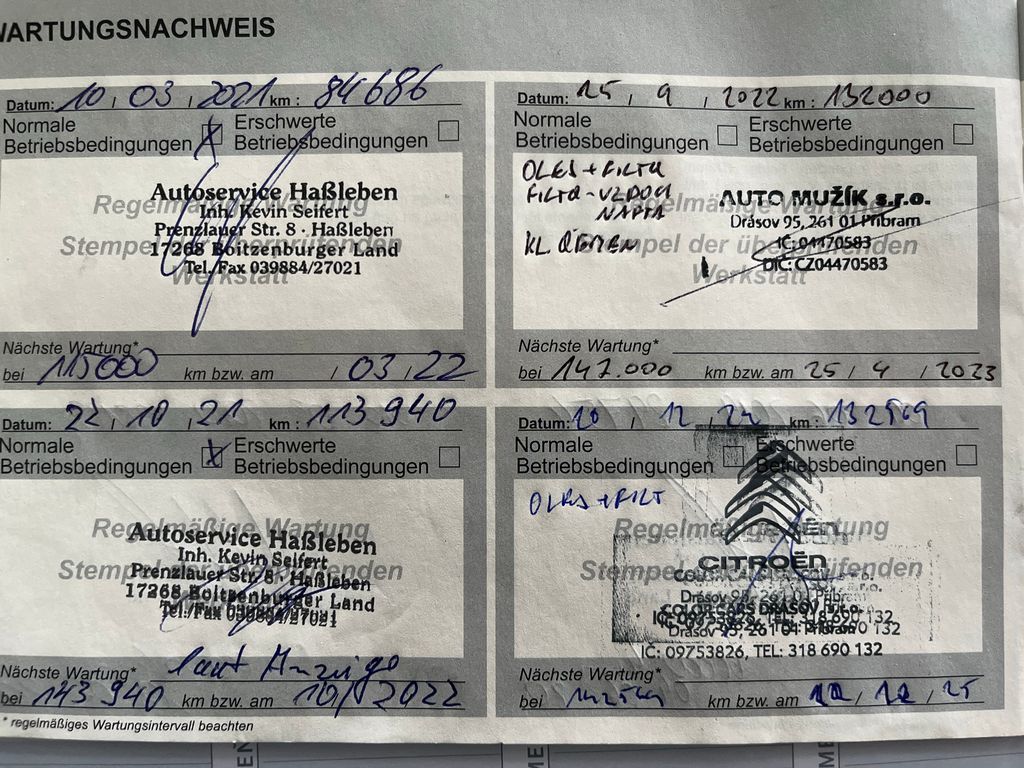 WARTUNGSNACHWEIS
Datum: 10 / 03 / 2021 km : 84686
Normale Betriebsbedingungen X Erschwerte Betriebsbedingungen
Regelmäßige Wartung
Stempel der überprüfenden
Werkstatt
Autoservice Haßleben
Inh. Kevin Seifert
Prenzlauer Str. 8 · Haßleben
17268 Boitzenburger Land
Tel./Fax 039884/27021
Nächste Wartung*
bei 115000 km bzw. am / 03 / 22
Datum: 25 / 9 / 2022 km : 132000
Normale Betriebsbedingungen Erschwerte Betriebsbedingungen
OLEJ + FILTR
FILTR - VZDUCH
NAFTA
KL. ŘEMEN
Regelmäßige Wartung
Stempel der überprüfenden
Werkstatt
AUTO MUŽÍK s.r.o.
Drásov 95, 261 01 Příbram
IC: 04470583
DIC: CZ04470583
Nächste Wartung*
bei 147.000 km bzw. am 25 / 9 / 2023
Datum: 22 / 10 / 21 km : 113 940
Normale Betriebsbedingungen X Erschwerte Betriebsbedingungen
Regelmäßige Wartung
Stempel der überprüfenden
Autoservice Haßleben
Inh. Kevin Seifert
Prenzlauer Str. 8 · Haßleben
17268 Boitzenburger Land
Tel./Fax 039884/27021
Nächste Wartung* laut Anzeige
bei 143 940 km bzw. am 10 / 2022
* regelmäßiges Wartungsintervall beachten
Datum: 20 / 12 / 24 km :
Normale Betriebsbedingungen Erschwerte Betriebsbedingungen
OLEJ + FILT
Regelmäßige Wartung
Stempel der überprüfenden
CITROËN
COLOR CARS DRÁSOV s.r.o.
Drásov 95, 261 01 Příbram
IC: 09753826, TEL: 318 690 132
Nächste Wartung*
bei km bzw. am 12 / 25